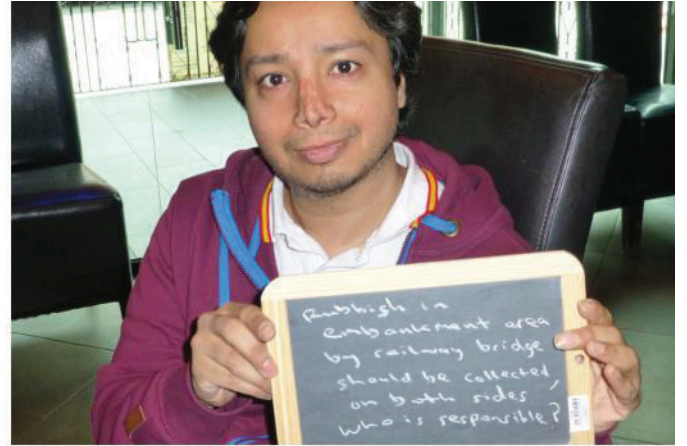 Rubbish in
embankment area
by railway bridge
should be collected
on both sides,
who is responsible?